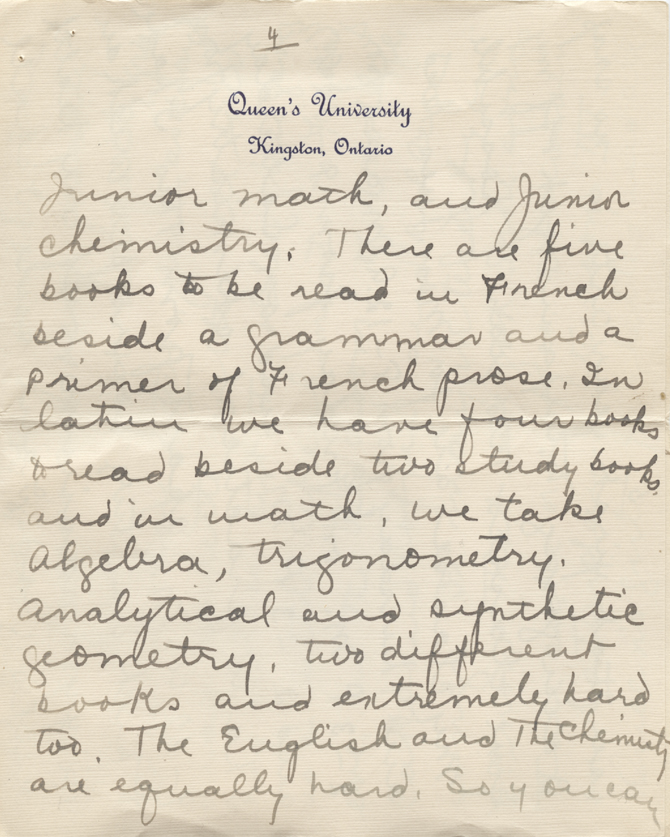 4
Queen's University
Kingston, Ontario
Junior math, and Junior
chemistry. There are five
books to be read in French
beside a grammar and a
primer of French prose. In
latin we have four books
to read beside two study books,
and in math, we take
Algebra, trigonometry.
Analytical and synthetic
geometry, two different
books and extremely hard
too. The English and The Chemistry
are equally hard. So you can